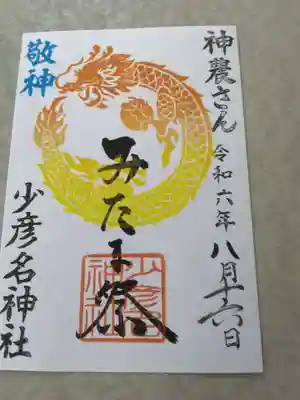 神農さん 令和六年 八月十六日
みたま祭
敬神
少彦名神社